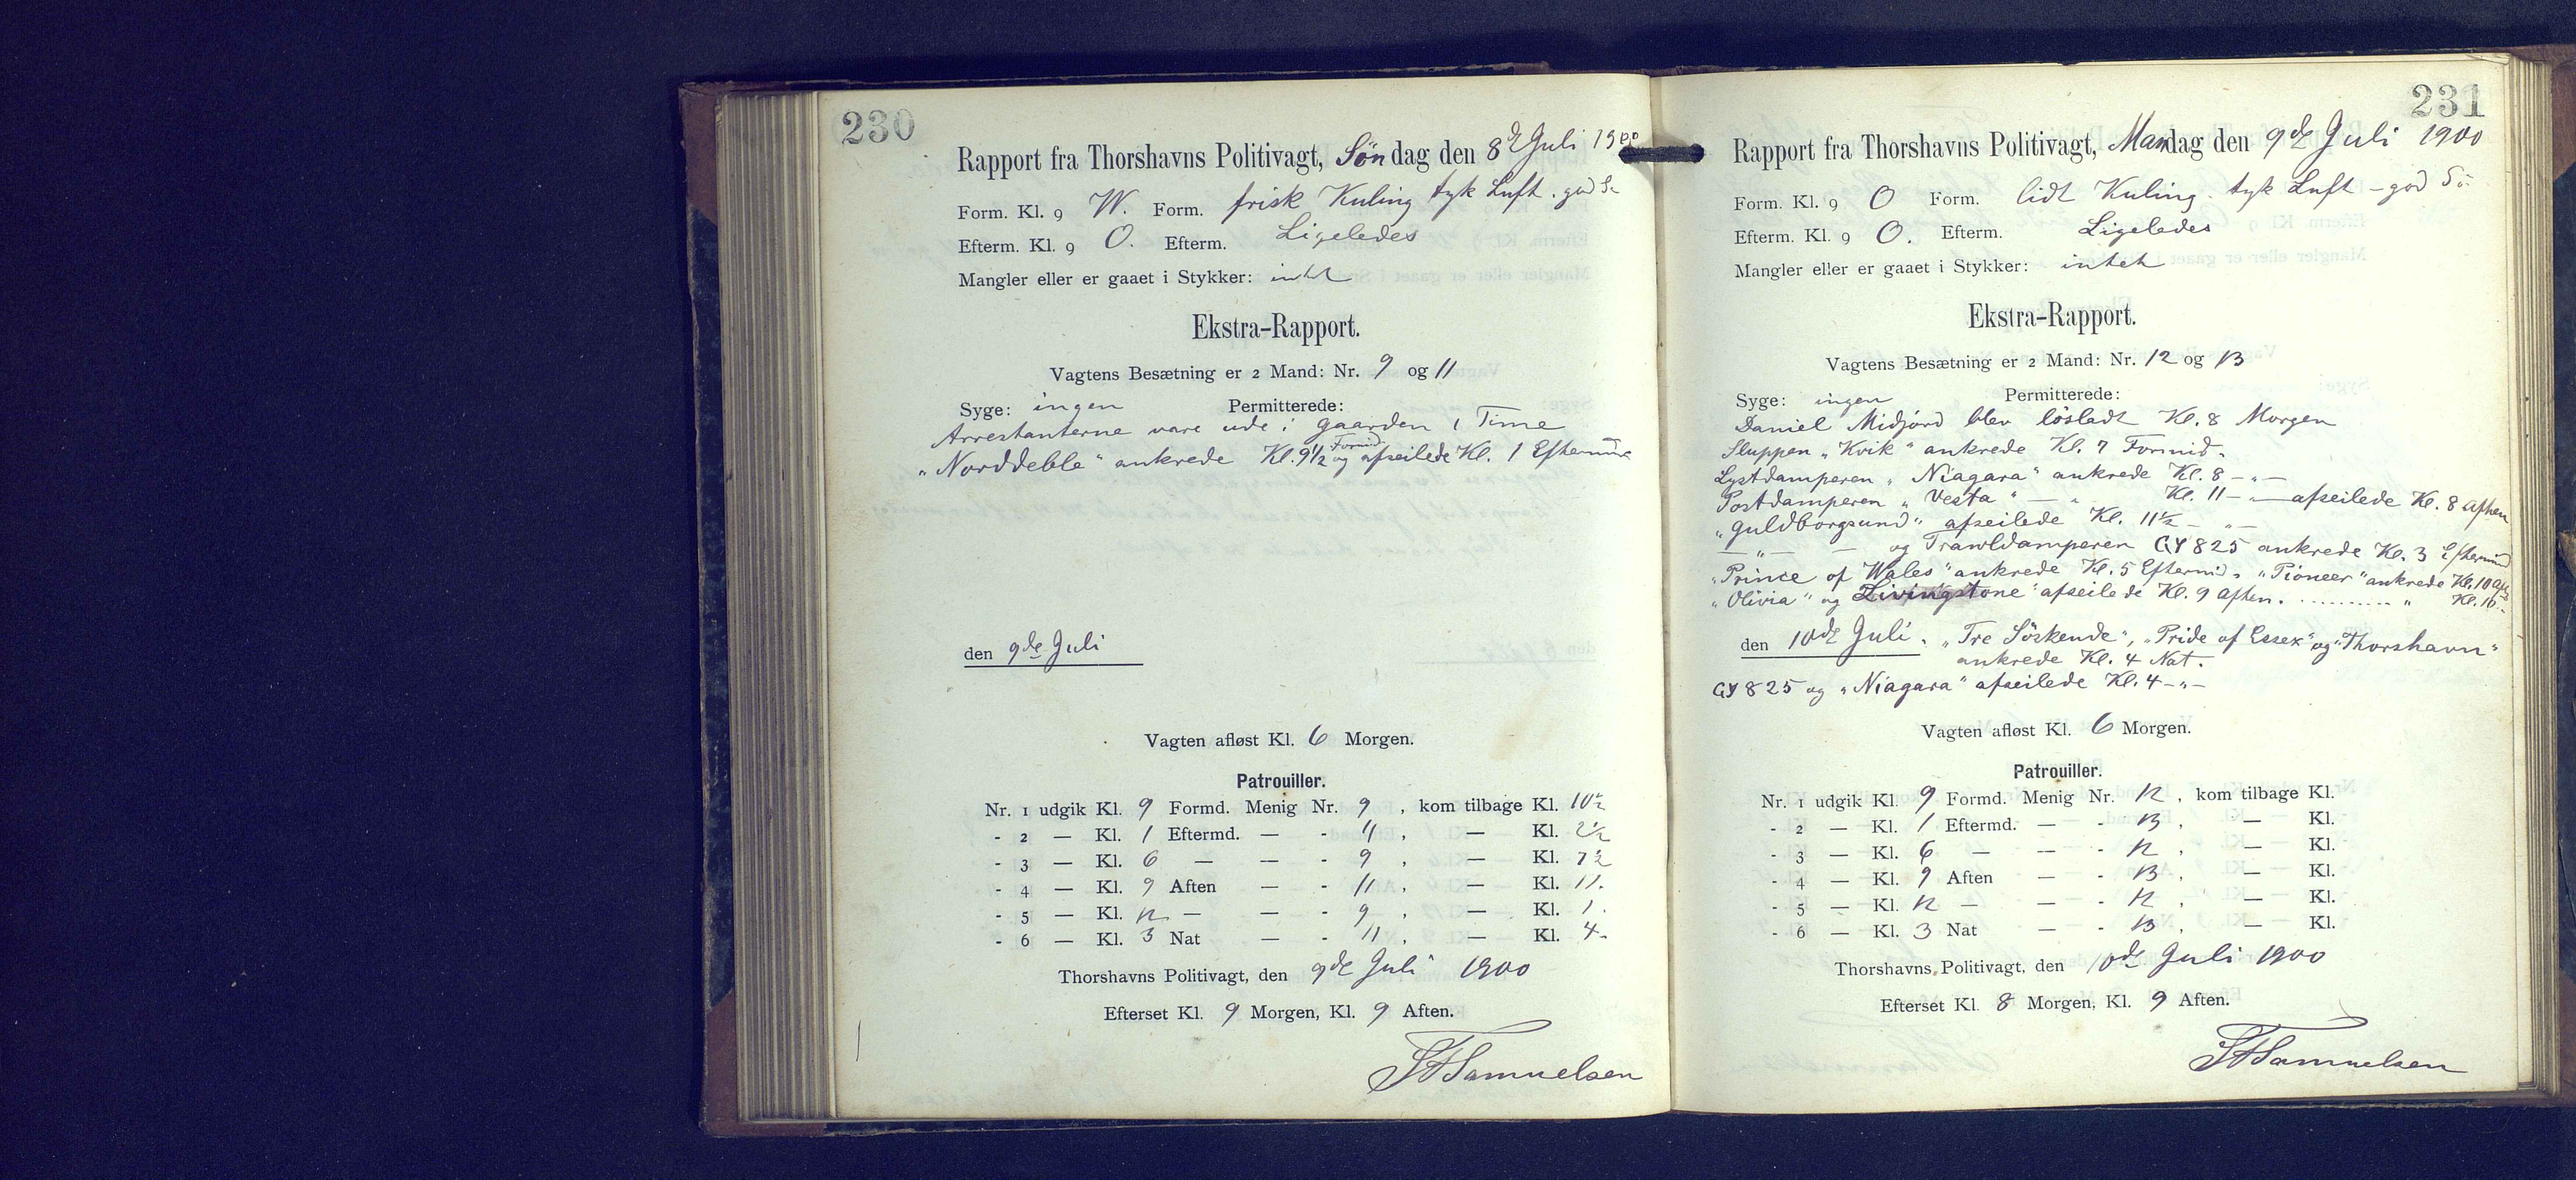 230
Rapport fra Thorshavns Politivagt, Søndag den 8de Juli 1900
Form. Kl. 9 W. Form. frisk Kuling tyk Luft. god Sö
Efterm. Kl. 9 O. Efterm. Ligeledes
Mangler eller er gaaet i Stykker: intet
Ekstra-Rapport.
Vagtens Besætning er 2 Mand: Nr. 9 og 11
Syge: ingen Permitterede:
Arrestanterne vare ude i Gaarden 1 Time
„Norddeble“ ankrede Kl. 9 1/2 Formid og afseilede Kl. 1 Eftermid
den 9de Juli
Vagten afløst Kl. 6 Morgen.
Patrouiller.
Nr. 1 udgik Kl. 9 Formd. Menig Nr. 9, kom tilbage Kl. 10 1/2
- 2 — Kl. 1 Eftermd. — - 11, — Kl. 2 1/2
- 3 — Kl. 6 — — - 9, — Kl. 7 1/2
- 4 — Kl. 9 Aften — - 11, — Kl. 11.
- 5 — Kl. 12 — — - 9, — Kl. 1.
- 6 — Kl. 3 Nat — - 11, — Kl. 4.
Thorshavns Politivagt, den 9de Juli 1900
Efterset Kl. 9 Morgen, Kl. 9 Aften.
Samuelsen
231
Rapport fra Thorshavns Politivagt, Mandag den 9de Juli 1900
Form. Kl. 9 O Form. lidt Kuling. tyk Luft - god Sö
Efterm. Kl. 9 O. Efterm. Ligeledes
Mangler eller er gaaet i Stykker: intet
Ekstra-Rapport.
Vagtens Besætning er 2 Mand: Nr. 12 og 13
Syge: ingen Permitterede:
Daniel Midjord blev lösladt Kl. 8 Morgen
Sluppen „Kvik“ ankrede Kl. 7 Formid.
Lystdamperen „Niagara“ ankrede Kl. 8 -„-
Postdamperen „Vesta“ — „ Kl. 11 -„- afseilede Kl. 8 Aften
„Guldborgsund“ afseilede Kl. 11 1/2 -„-
—„— — og Trawldamperen GY 825 ankrede Kl. 3 Eftermid
„Prince of Wales“ ankrede Kl. 5 Eftermid. „Pioneer“ ankrede Kl. 10 Aft
„Olivia“ og Livingstone“ afseilede Kl. 9 Aften. .......... „ Kl. 10 -
den 10de Juli. „Tre Söskende“, „Pride of Essex“ og „Thorshavn“
ankrede Kl. 4 Nat.
GY 825 og „Niagara“ afseilede Kl. 4 -„-
Vagten afløst Kl. 6 Morgen.
Patrouiller.
Nr. 1 udgik Kl. 9 Formd. Menig Nr. 12, kom tilbage Kl.
- 2 — Kl. 1 Eftermd. — - 13, — Kl.
- 3 — Kl. 6 — — - 12, — Kl.
- 4 — Kl. 9 Aften — - 13, — Kl.
- 5 — Kl. 12 — — - 12, — Kl.
- 6 — Kl. 3 Nat — - 13, — Kl.
Thorshavns Politivagt, den 10de Juli 1900
Efterset Kl. 8 Morgen, Kl. 9 Aften.
Samuelsen